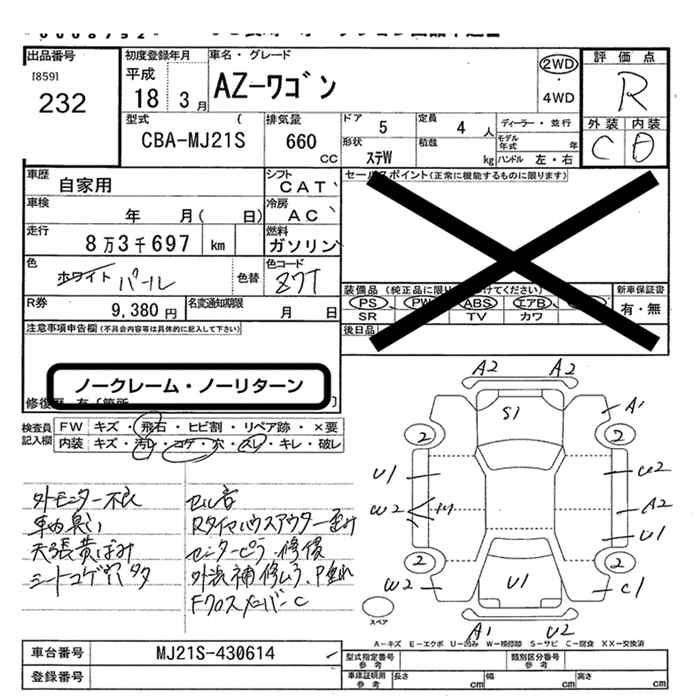 出品番号
[859]
232
初度登録年月
平成
18 3 月
車名・グレード
AZ-ワゴン
2WD
・
4WD
評価点
R
外装 内装
C D
型式 (
CBA-MJ21S
排気量
660
cc
ドア 5
定員 4 人
形状 ステW
積載 kg
ディーラー・並行
モデル年式 年
ハンドル 左・右
車歴
自家用
車検
年 月( 日)
走行
8万3千697 km
色
ホワイト パール
色替
R券
9,380 円
名変通知期限
月 日
シフト
CAT
冷房
AC
燃料
ガソリン
色コード
27T
セールスポイント(正常に機能するものに限ります)
装備品
PS PW ABS エアB
SR TV カワ
後日品
新車保証書
有・無
注意事項申告欄(不具合内容等は具体的に記入して下さい)
ノークレーム・ノーリターン
検査員記入欄
FW キズ・飛石・ヒビ割・リペア跡・×要
内装 キズ・汚レ・コゲ・穴・スレ・キレ・破レ
外モニター不良
車内臭い
天張黄ばみ
シートコゲ穴
セル音
Rタイヤハウスアウター歪み
センターピラー修復
Fクロスメンバー C
A2 A2
S1
A1
2 2
U1 U2
W2 A2
U1
2 2
W2 U1 C1
A1 U2
スペア
A-キズ E-エクボ U-凹み W-補修跡 S-サビ C-腐食 XX-交換済
車台番号
MJ21S-430614
登録番号
型式指定番号
参考
類別区分番号
参考
車庫証明用
参考
長さ cm
幅 cm
高さ cm